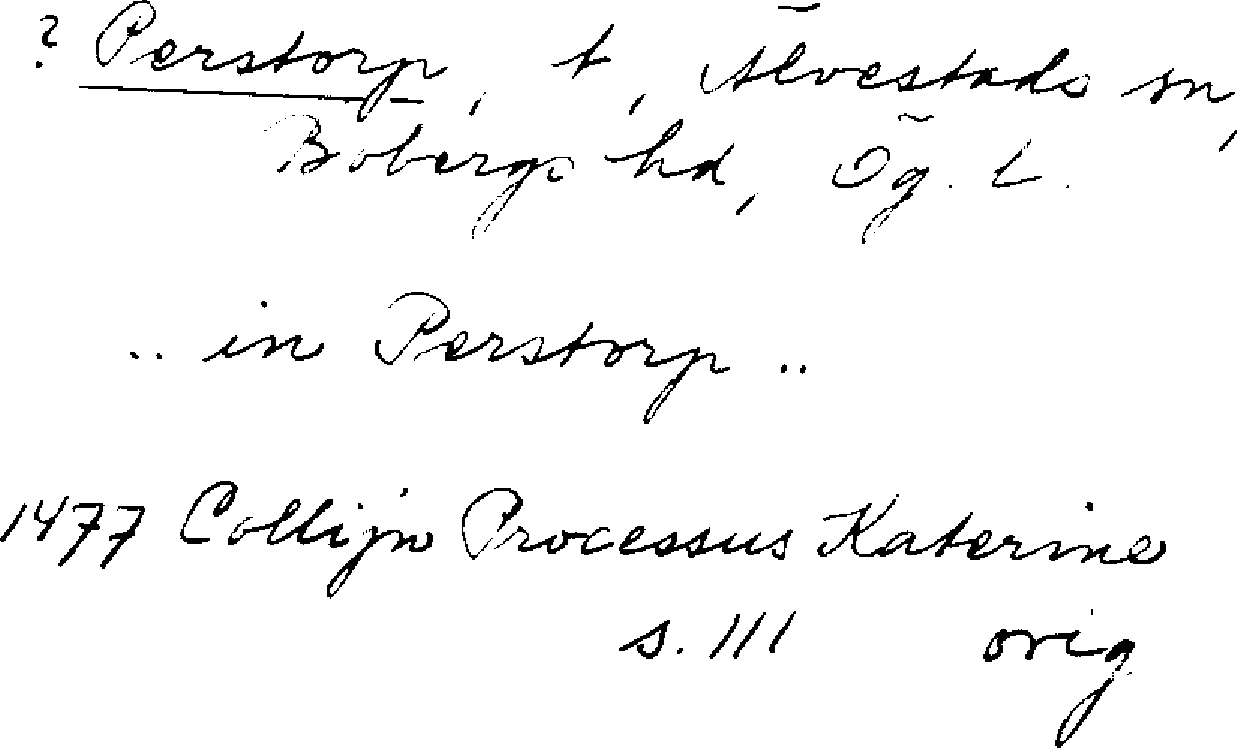 ? Perstorp, t, Älvestads sn,
Bobergs hd, Ög. L.
.. in Perstorp ..
1477 Collijn Processus Katerine
s. 111 orig